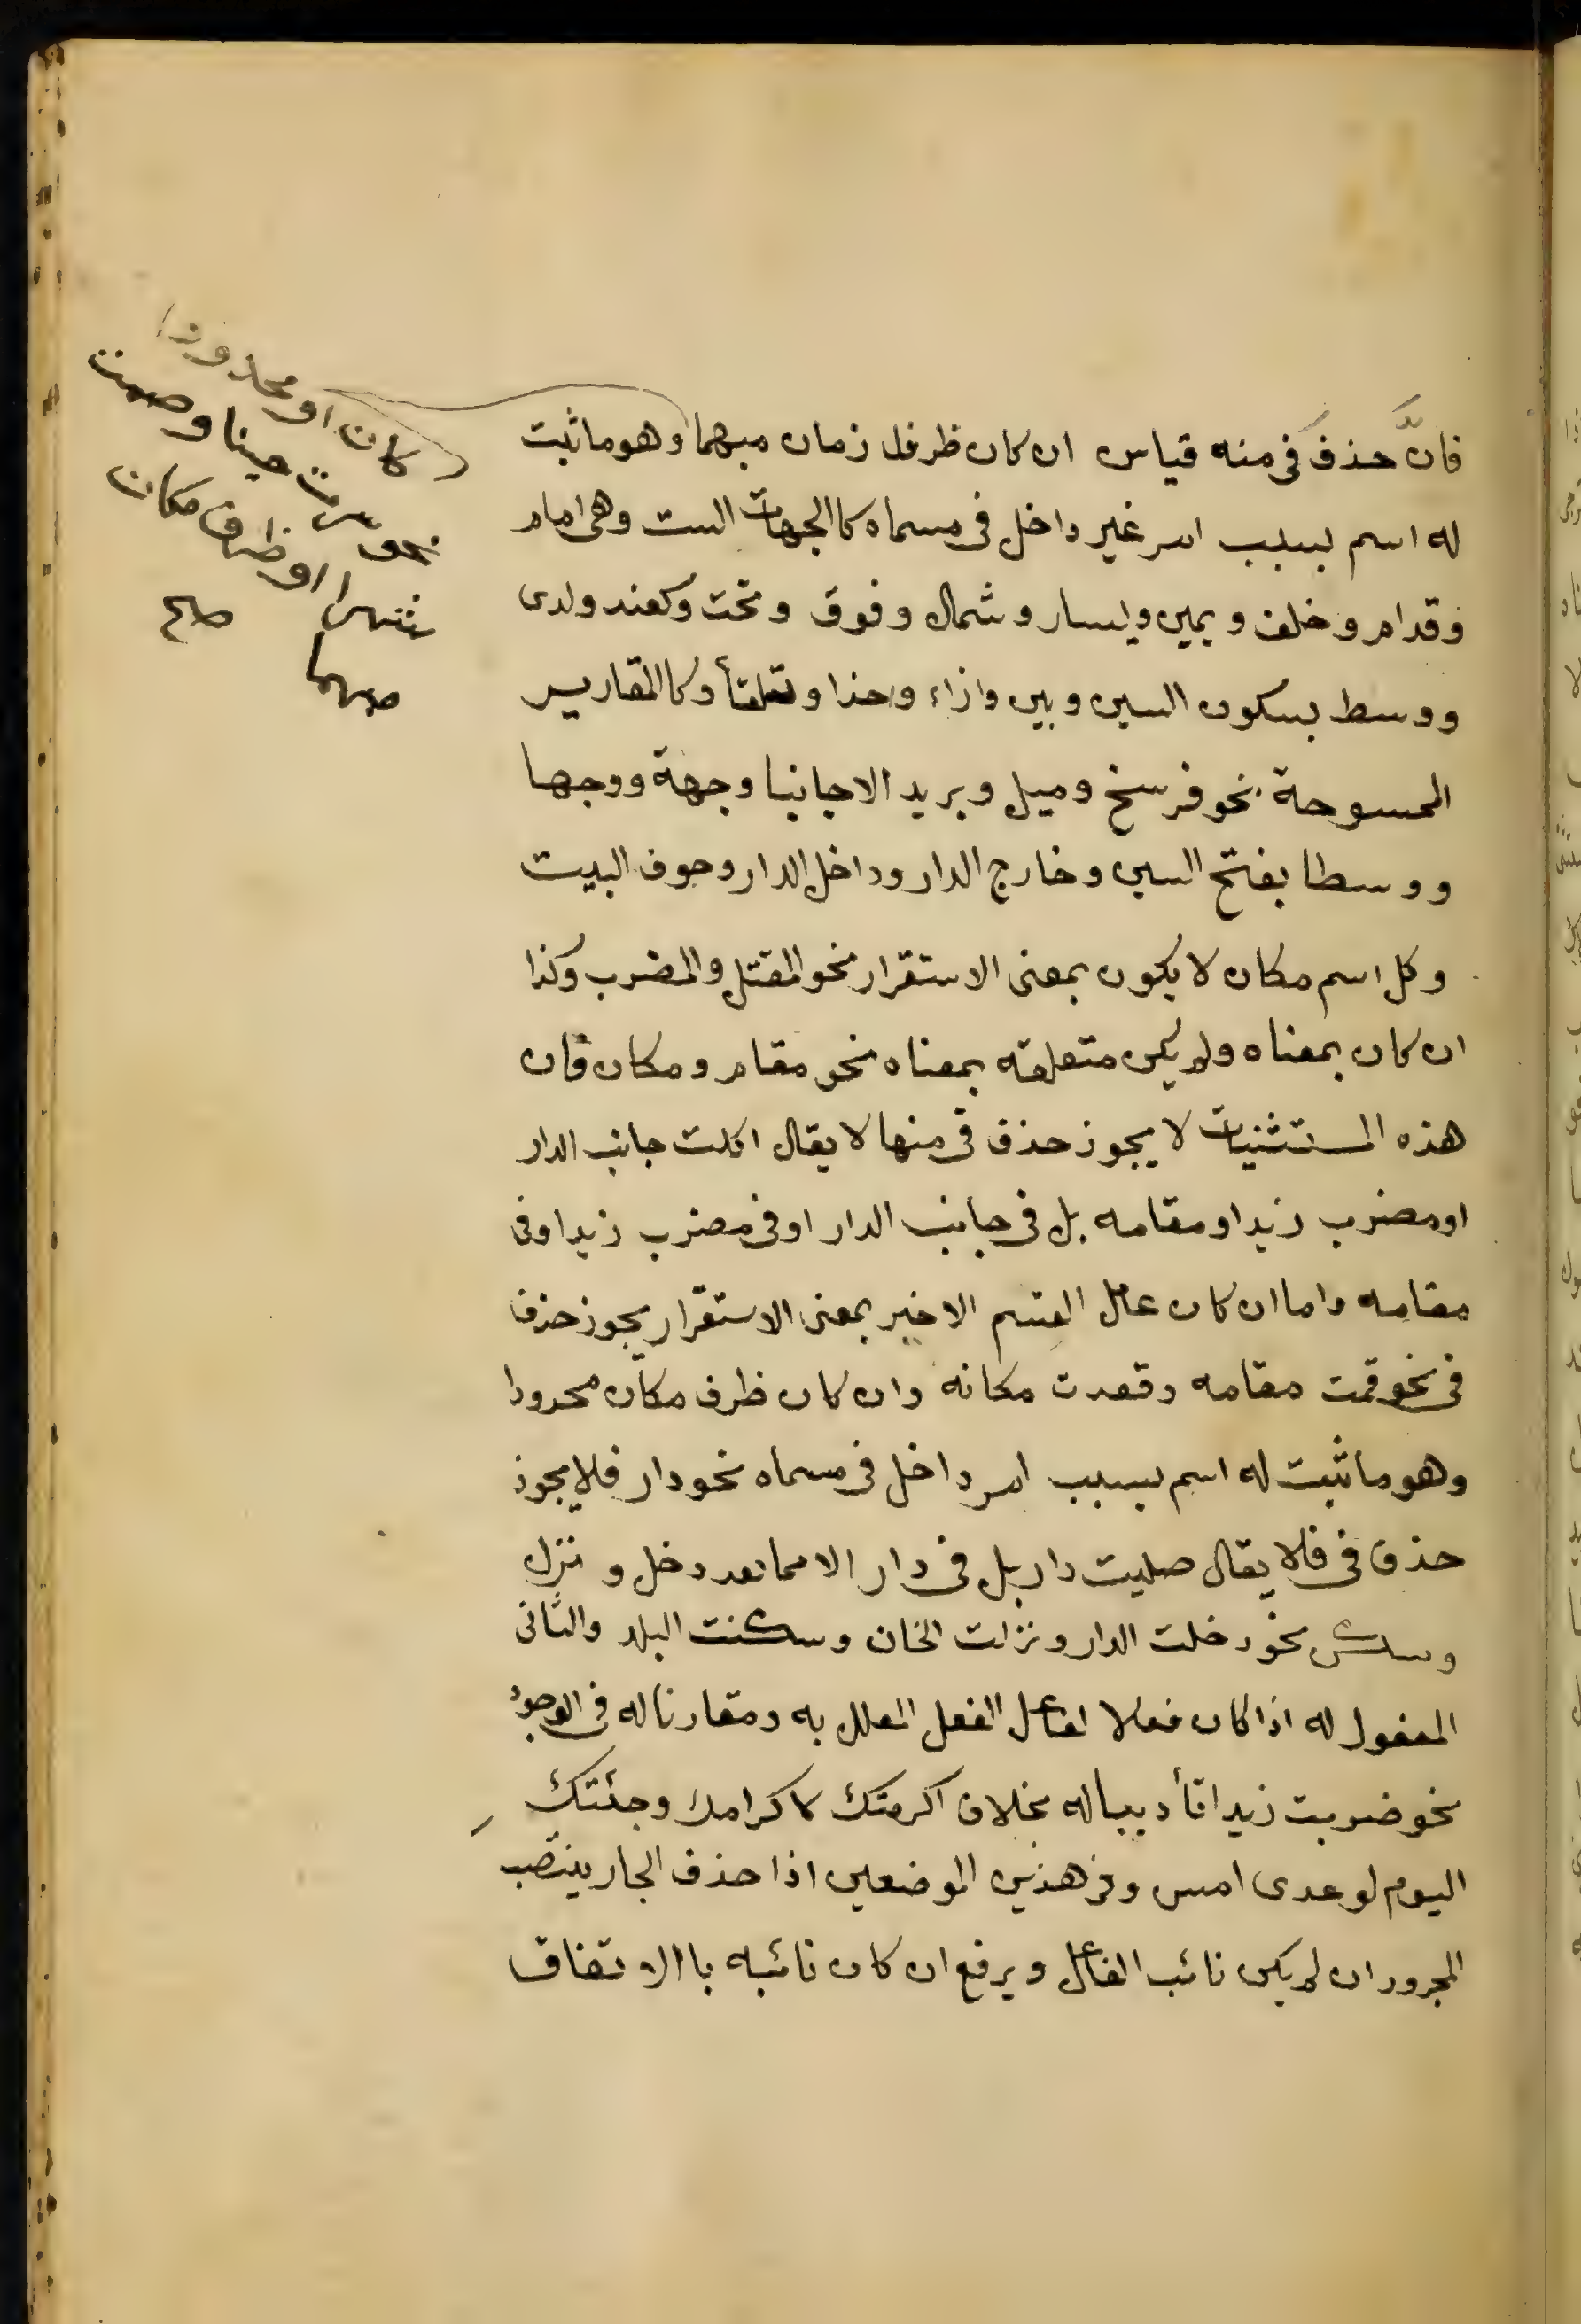 فانَّ حذفَ فى منه قياس ان كان ظرف زمان مبهما وهو ما ثبت
له اسم بسبب امر غير داخل فى مسماه كالجهات الست وهى امام
وقدام وخلف ويمين ويسار وشمال وفوق وتحت وكعند ولدى
ووسط بسكون السين وبين وازاء وحذا وتلقأ وكالمقادير
الممسوحة نحو فرسخ وميل وبريد الا جانبا وجهة ووجها
ووسطا بفتح السين وخارج الدار وداخل الدار وجوف البيت
وكل اسم مكان لا يكون بمعنى الاستقرار نحو المقتل والمضرب وكذا
ان كان بمعناه ولم يكن متعلقه بمعناه نحو مقام ومكان فان
هذه المستثنيات لا يجوز حذف فى منها لا يقال اكلت جانب الدار
او مضرب زيد او مقامه بل فى جانب الدار او فى مضرب زيد او فى
مقامه واما ان كان عامل القسم الاخير بمعنى الاستقرار يجوز حذف
فى نحو قمت مقامه وقعدت مكانه وان كان ظرف مكان محدودا
وهو ما ثبت له اسم بسبب امر داخل فى مسماه نحو دار فلا يجوز
حذف فى فلا يقال صليت دار بل فى دار الا مما بعد دخل و نزل
وسكن نحو دخلت الدار ونزلت الخان وسكنت البلد والثانى
المفعول له اذا كان فعلا لفاعل الفعل المعلل به ومقارنا له فى الوجود
نحو ضربت زيدا تأديبا له بخلاف اكرمتك لاكرامك وجئتك
اليوم لوعدى امس وفى هذين الموضعين اذا حذف الجار ينتصب
المجرور ان لم يكن نائب الفاعل ويرفع ان كان نائبه باالاتفاق
كان او محدودا
نحو سرت حينا وصمت
شهرا او ظرف مكان
مبهما صح